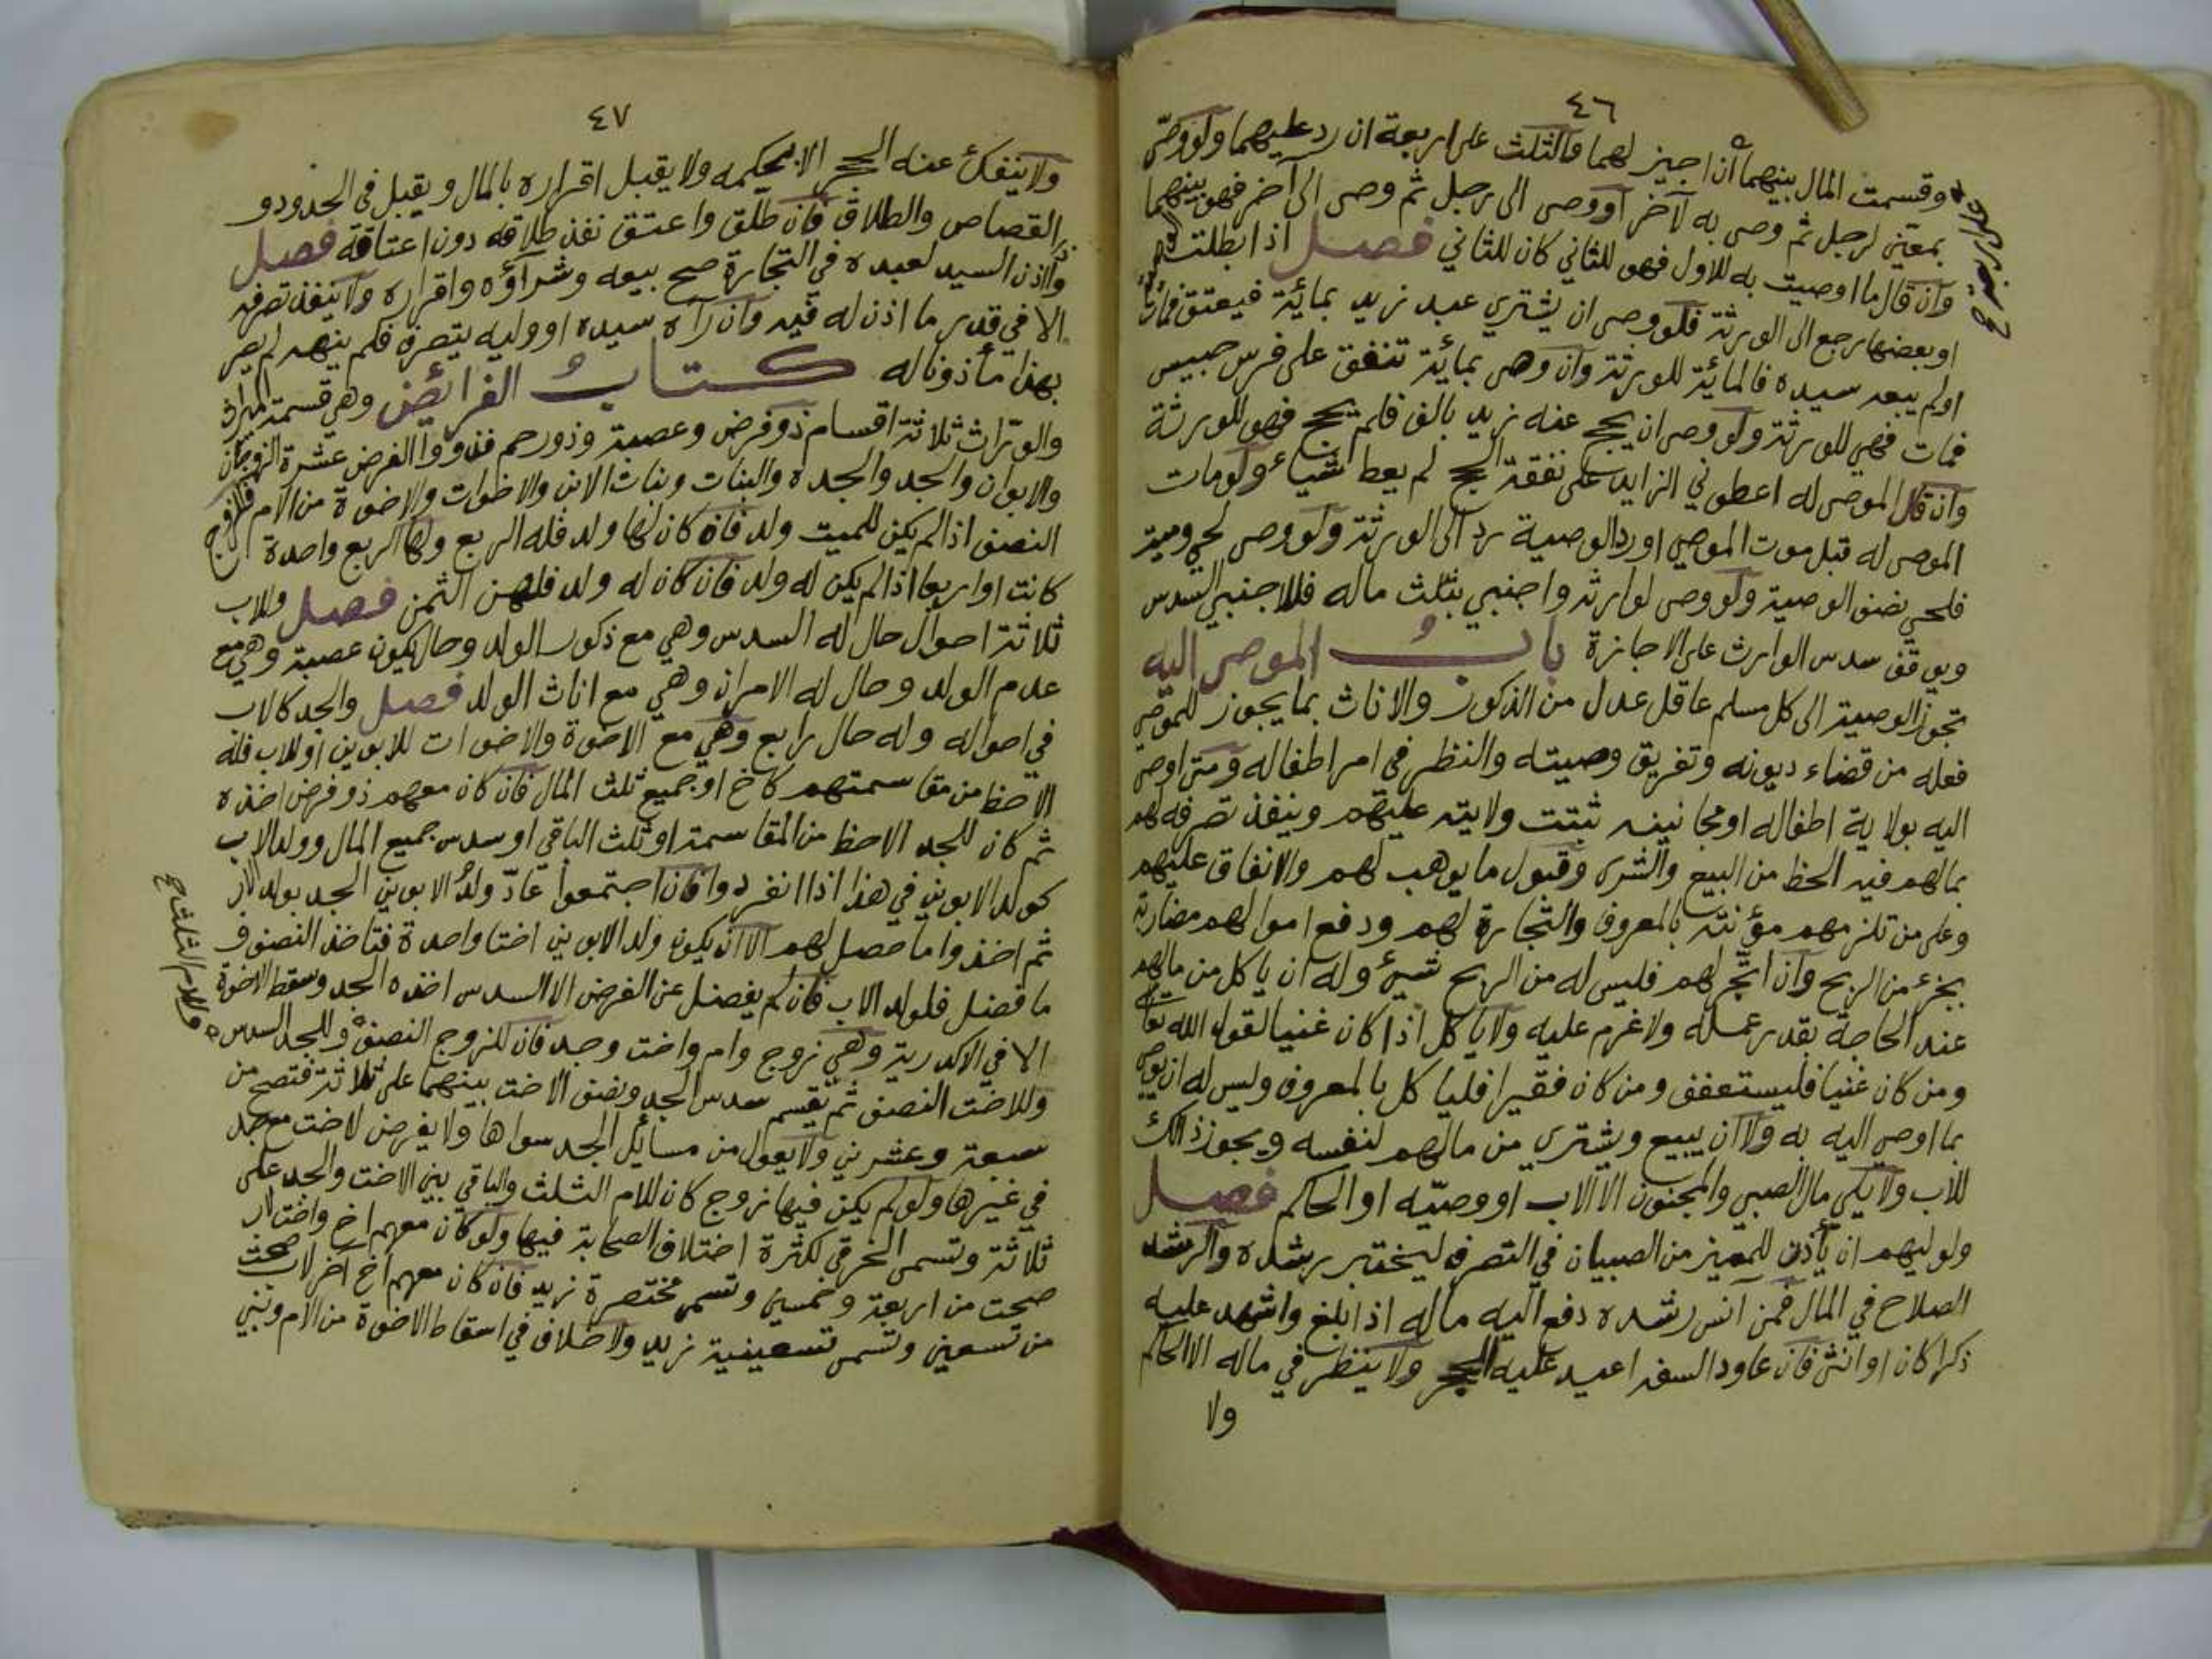 ٤٦
وقسمت المال بينهما ان اجيز لهما والثلث على اربعة ان رد عليهما ولو وصى
بمعين لرجل ثم وصى به لآخر او وصى الى رجل ثم وصى الى آخر فهو بينهما
وان قال ما اوصيت به للاول فهو للثاني كان للثاني فصل اذا بطلت الوصية
او بعضها رجع الى الورثة فلو وصى ان يشترى عبد زيد بمائة فيعتق فمات
او لم يبعه سيده فالمائة للورثة وان وصى بمائة تنفق على فرس حبيس
فمات فهي للورثة ولو وصى ان يحج عنه زيد بالف فلم يحج فهو للورثة
وان قال الموصى له اعطوني الزايد على نفقة الحج لم يعط شياء ولو مات
الموصى له قبل موت الموصي او رد الوصية رد الى الورثة ولو وصى لحي وميت
فلحي نصف الوصية ولو وصى لوارثه واجنبي بثلث ماله فللاجنبي السدس
ويوقف سدس الوارث على الاجازة باب الموصى اليه
تجوز الوصية الى كل مسلم عاقل عدل من الذكور والاناث بما يجوز للموصي
فعله من قضاء ديونه وتفريق وصيته والنظر في امر اطفاله ومتى اوصى
اليه بولاية اطفاله او مجانينه ثبتت ولايته عليهم وينفذ تصرفه لهم
بمالهم فيه الحظ من البيع والشرى وقبول ما يوهب لهم والانفاق عليهم
وعلى من تلزمهم مؤنته بالمعروف والتجارة لهم ودفع اموالهم مضاربة
بجزء من الربح وان اتجر لهم فليس له من الربح شيئ وله ان ياكل من مالهم
عند الحاجة بقدر عمله ولا غرم عليه ولا ياكل اذا كان غنيا لقول الله تعالى
ومن كان غنيا فليستعفف ومن كان فقيرا فلياكل بالمعروف وليس له ان يوصي
بما اوصى اليه به ولا ان يبيع ويشتري من مالهم لنفسه ويجوز ذالك
للاب ولا يلي مال الصبي والمجنون الا الاب او وصيه او الحاكم فصل
ولوليهم ان يأذن للمميز من الصبيان في التصرف ليختبر رشده والرشد
الصلاح في المال فمن آنس رشده دفع اليه ماله اذا بلغ واشهد عليه
ذكرا كان او انثى فان عاود السفه اعيد عليه الحجر ولا ينظر في ماله الا الحاكم
ولا
٤٧
ولا ينفك عنه الحجر الا بحكمه ولا يقبل اقراره بالمال ويقبل في الحدود و
القصاص والطلاق فان طلق واعتق نفذ طلاقه دون اعتاقه فصل
واذن السيد لعبده في التجارة صح بيعه وشرآؤه واقراره ولا ينفذ تصرفه
الا في قدر ما اذن له فيه وان رآه سيده او وليه يتصرف فلم ينهه لم يصر
بهذا مأذونا له كتاب الفرائض وهي قسمة الميراث
والوراث ثلاثة اقسام ذو فرض وعصبة وذو رحم فذووا الفرض عشرة الزوجان
والابوان والجد والجده والبنات وبنات الابن والاخوات والاخوة من الام فللزوج
النصف اذا لم يكن للميت ولد فان كان لها ولد فله الربع ولها الربع واحدة
كانت او اربعا اذا لم يكن له ولد فان كان له ولد فلهن الثمن فصل وللاب
ثلاثة احوال حال له السدس وهي مع ذكور الولد وحال يكون عصبة وهي مع
عدم الولد وحال له الامران وهي مع اناث الولد فصل والجد كالاب
في احواله وله حال رابع وهي مع الاخوة والاخوات للابوين او للاب فله
الاحظ من مقاسمتهم كاخ او جميع ثلث المال فان كان معهم ذو فرض اخذه
ثم كان للجد الاحظ من المقاسمة او ثلث الباقي او سدس جميع المال وولد الاب
كولد الابوين في هذا اذا انفردوا فان اجتمعوا عاد ولد الابوين الجد بولد الاب
ثم اخذوا ما حصل لهم الا ان يكون ولد الابوين اختا واحدة فتاخذ النصف و
ما فضل فلولد الاب فان لم يفضل عن الفرض الا السدس اخذه الجد وسقط الاخوة
الا في الاكدرية وهي زوج وام واخت وجد فان للزوج النصف وللجد السدس
وللاخت النصف ثم تقسم سدس الجد ونصف الاخت بينهما على ثلاثة فتصح من
سبعة وعشرين ولا يعول من مسائل الجد سواها ولا يفرض لاخت مع جد
في غيرها ولو لم يكن فيها زوج كان للام الثلث والباقي بين الاخت والجد على
ثلاثة وتسمى الخرقى لكثرة اختلاف الصحابة فيها ولو كان معهم اخ واخت لاب
صحت من اربعة وخمسين وتسمى مختصرة زيد فان كان معهم اخ آخر لاب صحت
من تسعين وتسمى تسعينية زيد ولا خلاف في اسقاط الاخوة من الام وبني
وللام الثلث صح